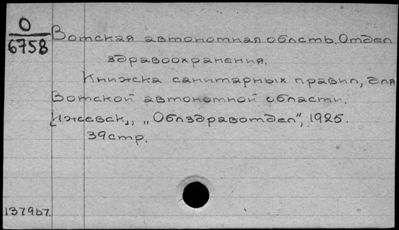 О
6758
Вотская автономная область. Отдел
здравоохранения.
Книжка санитарных правил, для
Вотской автономной области.
Ижевск, "Облздравотдел", 1925.
39стр.
137967.